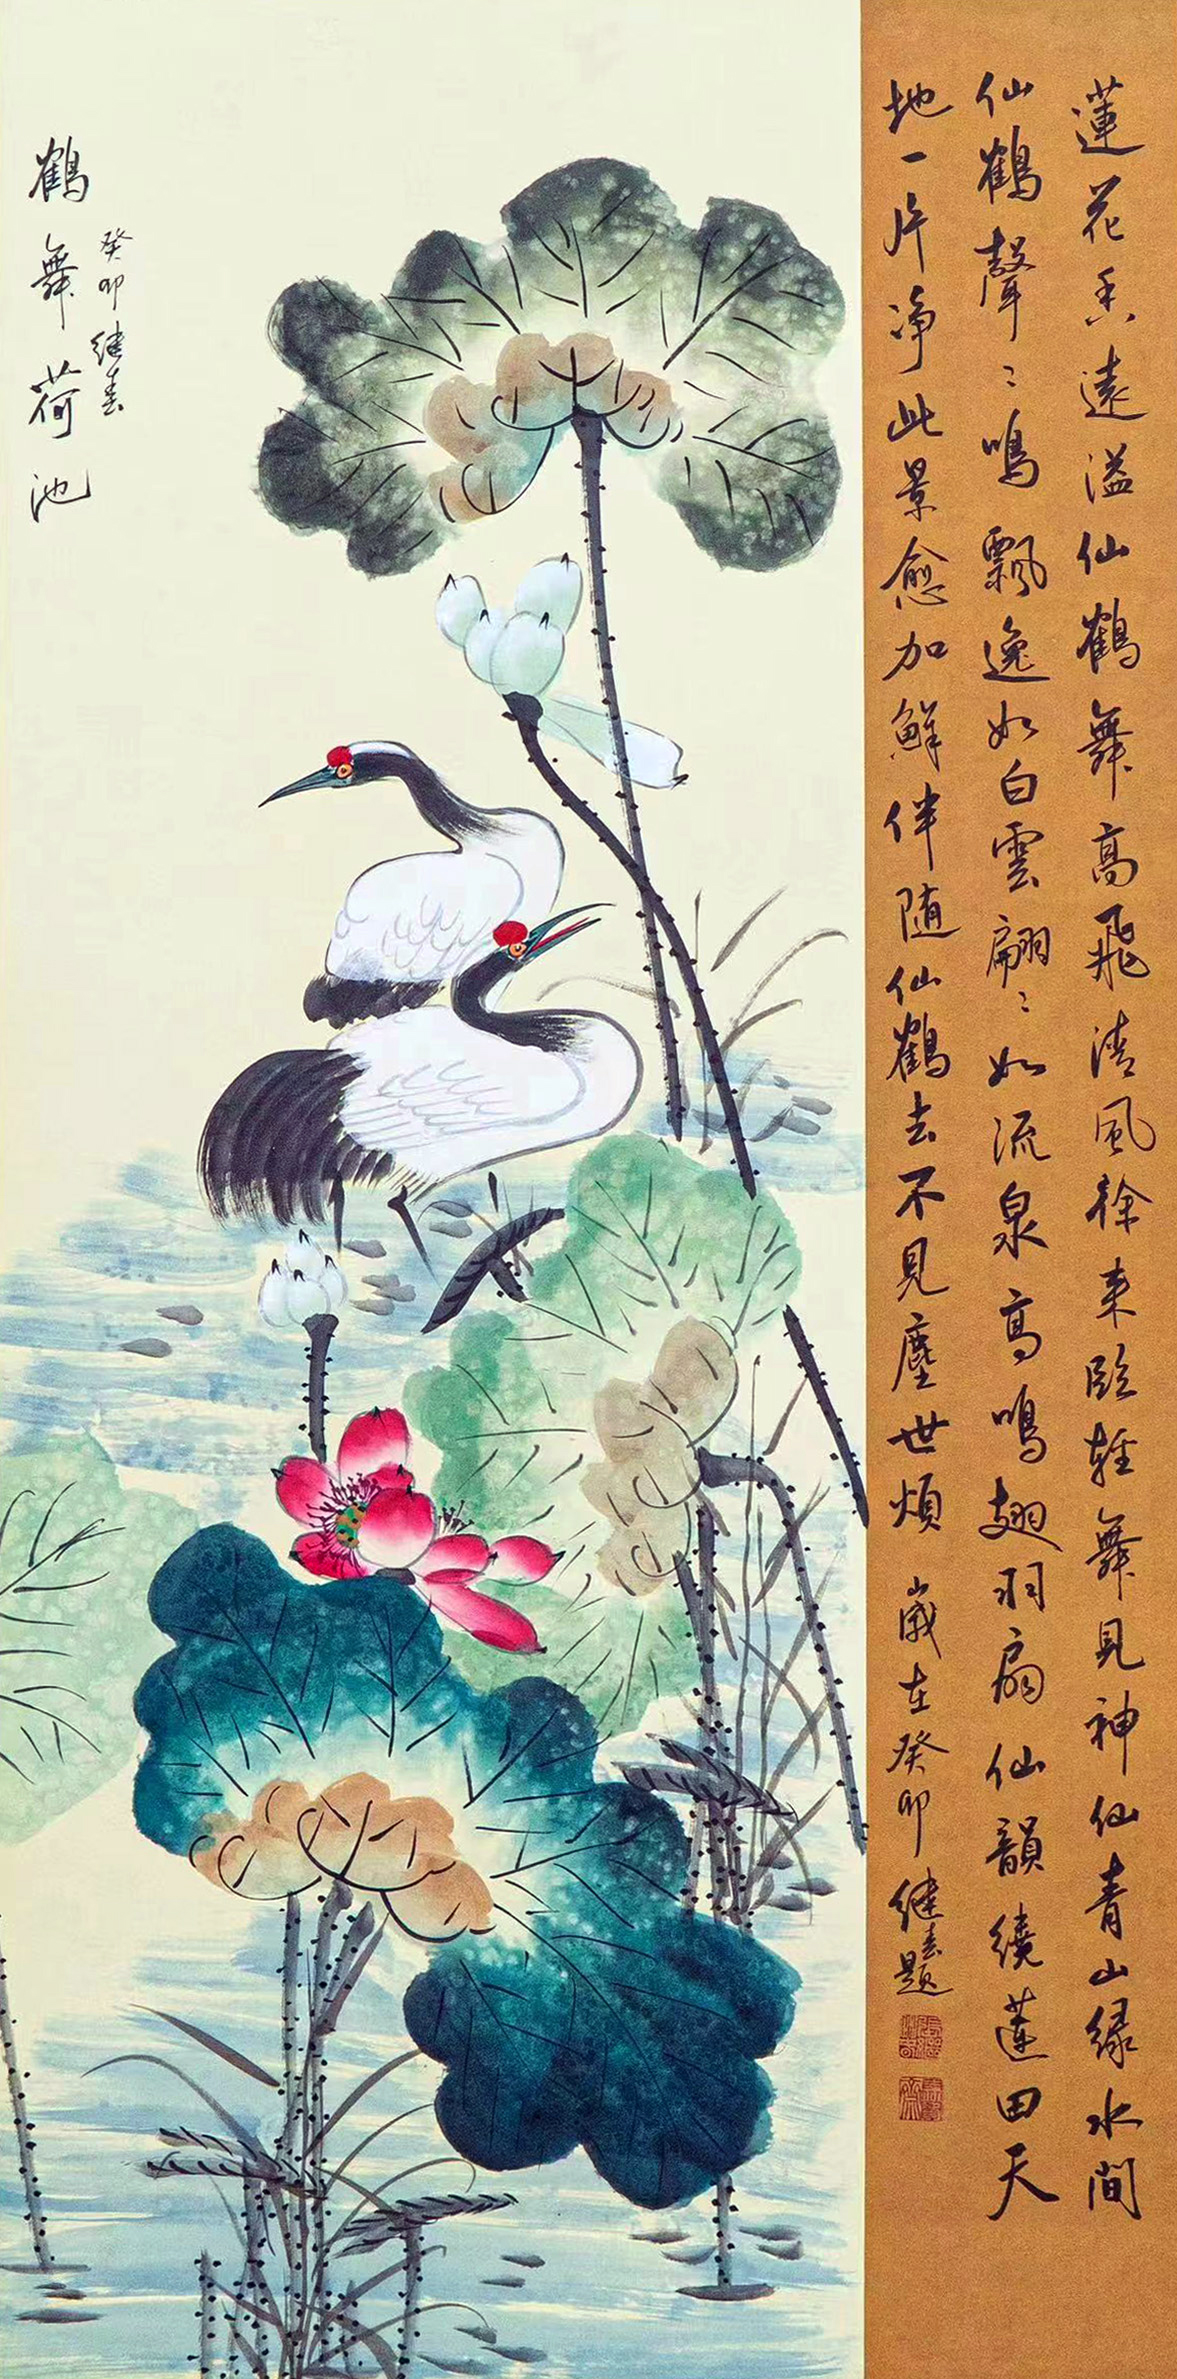 蓮花香遠溢仙鶴舞高飛清風徐来臨輕舞見神仙青山緑水間
仙鶴聲〻鳴飄逸如白雲翩〻如流泉高鳴翅羽扇仙韻繞蓮田天
地一片净此景愈加鮮伴随仙鶴去不見塵世煩 歲在癸卯 继春題
鶴舞荷池
癸卯 继春